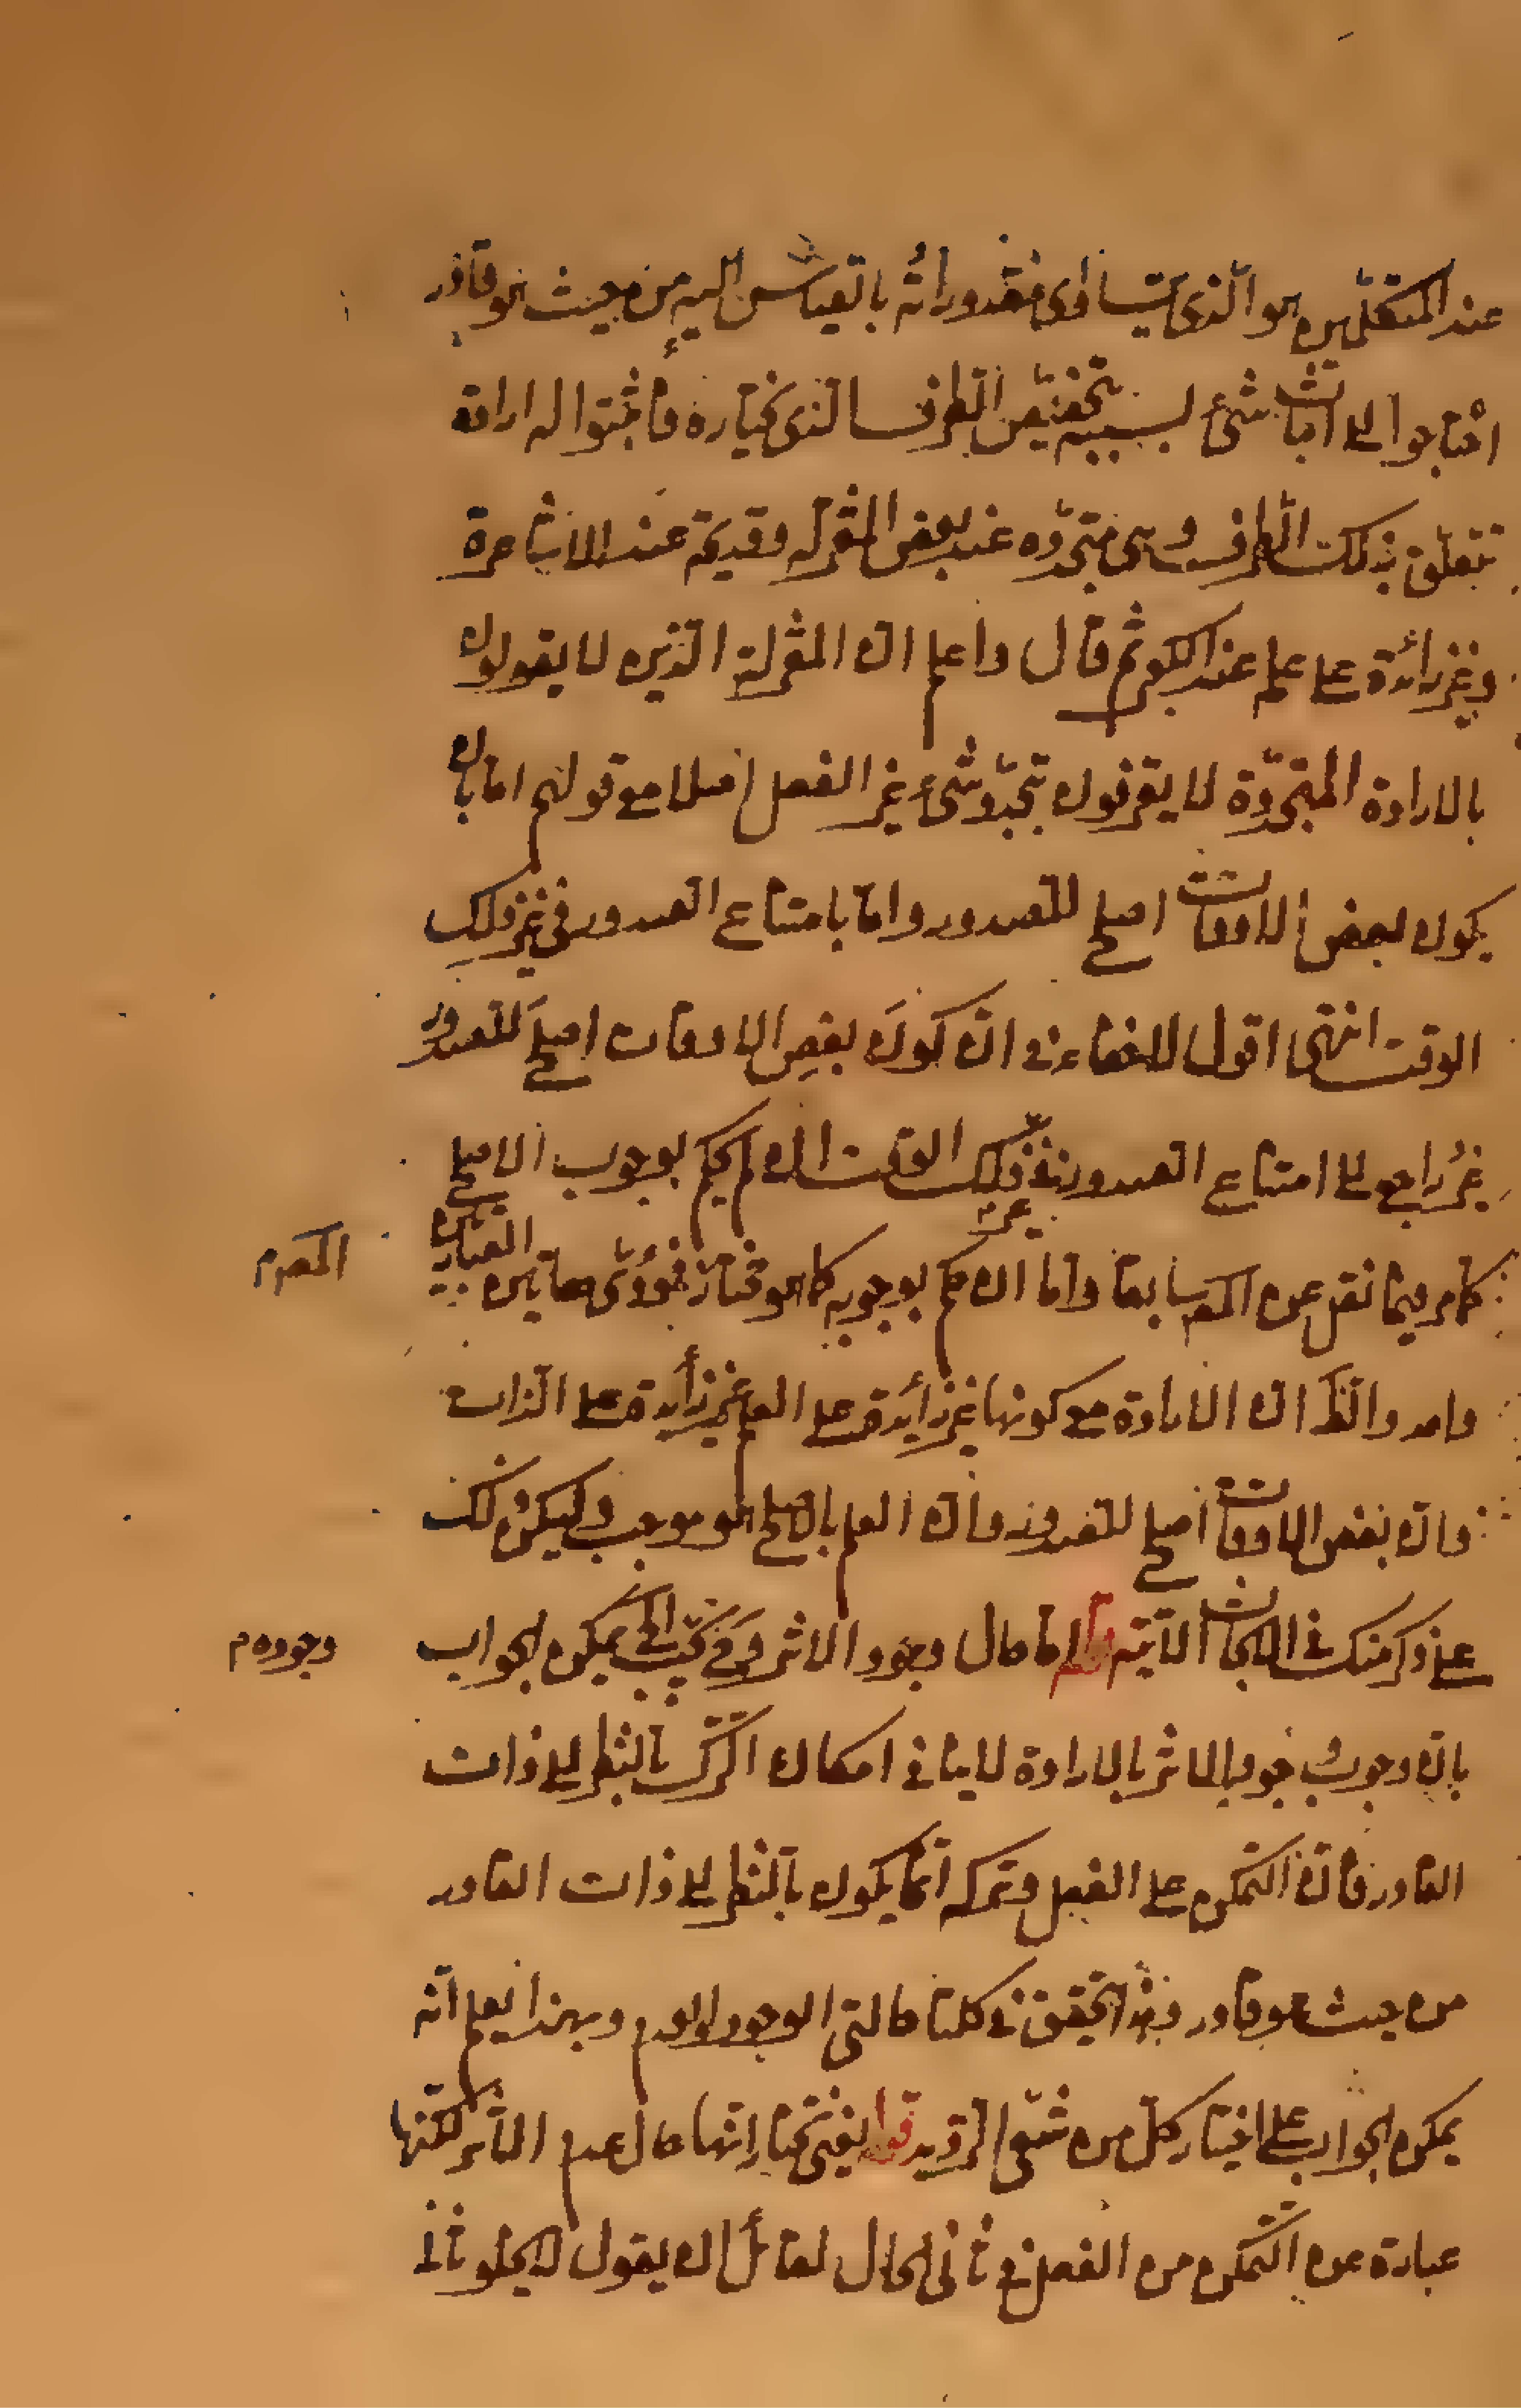 عند المتكلمين هو الذي يتساوى مقدوراته بالقياس اليه من حيث هو قادر
احتاجوا الى اثبات شيء بسببه يتخصّص الطرف الذي يختاره فاثبتوا له ارادة
تتعلق بذلك الطرف وهي متجدّده عند بعض المعتزله وقديمة عند الاشاعرة
وغير زائدة على علم عند الكعبي ثم قال واعلم ان المعتزلة الذين لا يقولون
بالارادة المتجدّدة لا يعرفون بتجدّد شيء غير الفعل اصلا مع قولهم اما بان
يكون بعض الاوقات اصلح للصدور واما بامتناع الصدور في غير ذلك
الوقت انتهى اقول لا خفاء في ان كون بعض الاوقات اصلح للصدور
غير راجع الى امتناع الصدور في غير ذلك الوقت ان لم يحكم بوجوب الاصلح
كما مر فيما نقل عن المصر سابقا واما ان حكم بوجوبه كما هو مختاره فمؤدّى هاتين العبارتين
المصر م
واحد والظ ان الارادة مع كونها غير زائدة على العلم غير زايدة على الذات
وان بعض الاوقات اصلح للصدور وان العلم بالاصلح هو موجب وليكن ذلك
على ذكر منك في الابحاث الآتية قوله اما حال وجود الاثر وفي يمكن الجواب
وجوده م
بان وجوب الاثر بالارادة لا ينافي امكان الترك بالنظر الى ذات
القادر فان التمكن على الفعل وتركه انما يكون بالنظر الى ذات القادر
من حيث هو قادر وهذا يتحقق في كلتا حالتي الوجود والعدم وبهذا يعلم انه
يمكن الجواب على اختيار كل من شقي الترديد قوله يعني نختار انها حال عدم الاثر لكنها
عبارة عن التمكن من الفعل في ثاني الحال لقائل ان يقول لا يخلو ثاني